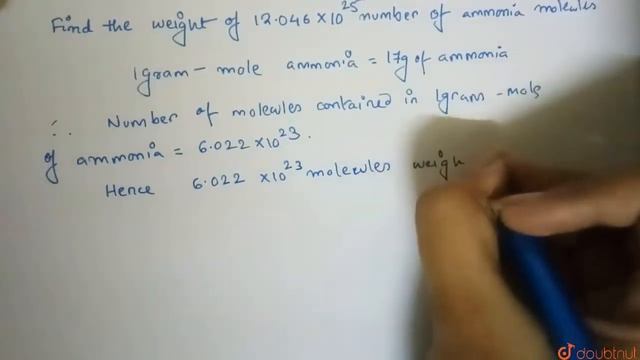 Find the weight of 12.046 × 10²⁵ number of ammonia molecules
1 gram - mole ammonia = 17g of ammonia
∴ Number of molecules contained in 1 gram - mole
of ammonia = 6.022 × 10²³.
Hence 6.022 × 10²³ molecules weigh
doubtnut